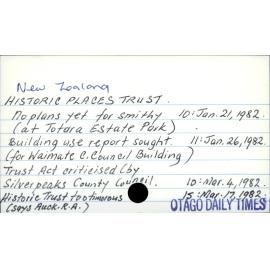 New Zealand
HISTORIC PLACES TRUST.
No plans yet for smithy 10: Jan. 21, 1982.
(at Totara Estate Park)
Building use report sought. 11: Jan. 26, 1982.
(for Waimate C. Council Building)
Trust Act criticised (by
Silverpeaks County Council. 10: Mar. 4, 1982.
Historic Trust too timorous 15: Mar. 17, 1982.
(says Auck. R.A.)
OTAGO DAILY TIMES